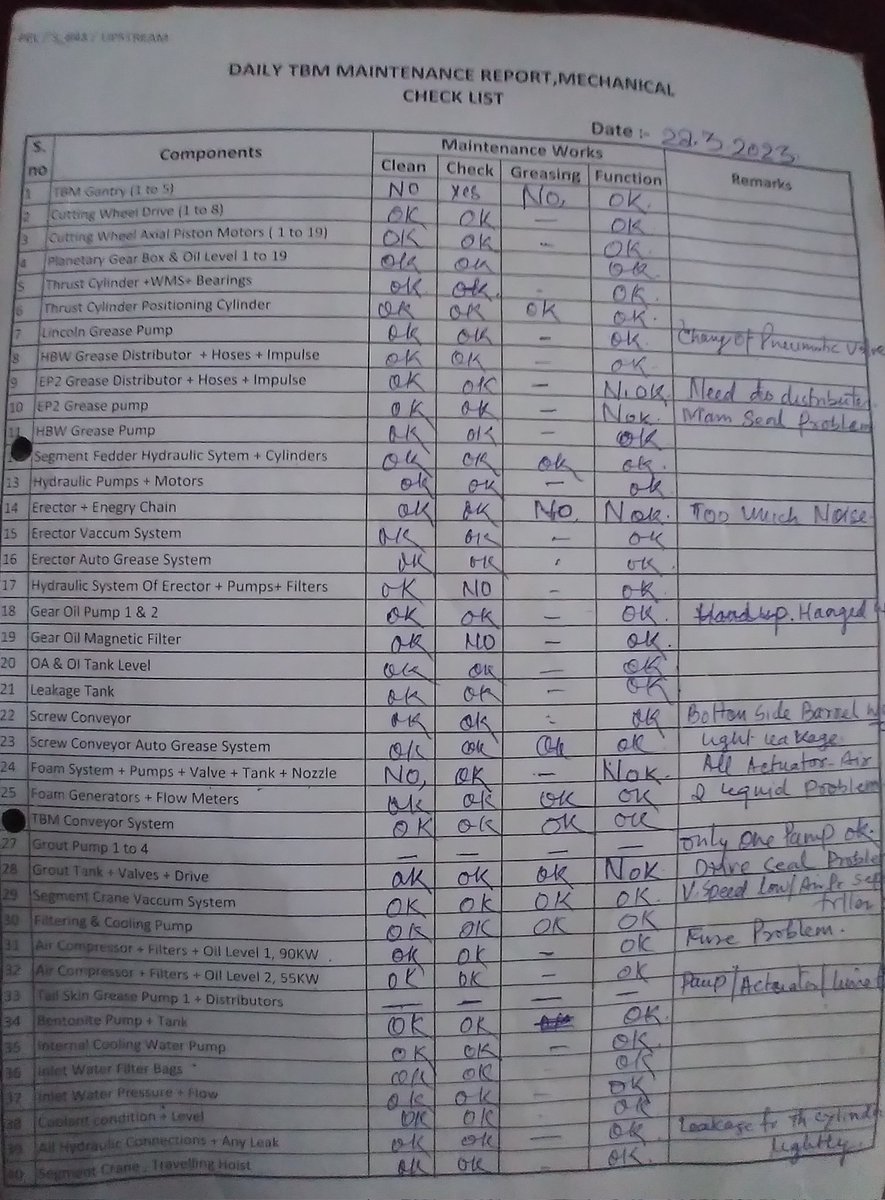 UPSTREAM
DAILY TBM MAINTENANCE REPORT,MECHANICAL
CHECK LIST
Date :- 22.3.2023
S. no Components Maintenance Works Remarks
Clean Check Greasing Function
1 TBM Gantry (1 to 5) NO Yes NO, OK.
2 Cutting Wheel Drive (1 to 8) OK OK — OK
3 Cutting Wheel Axial Piston Motors ( 1 to 19) OK OK - OK.
4 Planetary Gear Box & Oil Level 1 to 19 OK OK OK.
5 Thrust Cylinder +WMS+ Bearings OK OK. - OK.
6 Thrust Cylinder Positioning Cylinder OK OK OK OK.
7 Lincoln Grease Pump OK OK — OK. Chang of Pneumatic Valve
8 HBW Grease Distributor + Hoses + Impulse OK OK — OK
9 EP2 Grease Distributor + Hoses + Impulse OK OK — N.OK. Need to distributer
10 EP2 Grease pump OK OK — NOK. Main Seal Problem
11 HBW Grease Pump OK OK — OK
Segment Fedder Hydraulic Sytem + Cylinders OK OK OK OK.
13 Hydraulic Pumps + Motors OK OK — OK
14 Erector + Enegry Chain OK OK NO NOK. Too Much Noise
15 Erector Vaccum System OK OK — OK
16 Erector Auto Grease System OK OK - OK.
17 Hydraulic System Of Erector + Pumps+ Filters OK NO - OK.
18 Gear Oil Pump 1 & 2 OK OK — OK. Hanged
19 Gear Oil Magnetic Filter OK NO — OK.
20 OA & OI Tank Level OK OK — OK
21 Leakage Tank OK OK — OK
22 Screw Conveyor OK OK - OK Bottom Side Barrel
23 Screw Conveyor Auto Grease System OK OK OK OK Light leakage.
24 Foam System + Pumps + Valve + Tank + Nozzle NO, OK — NOK. All Actuator-Air
25 Foam Generators + Flow Meters OK OK OK OK Liquid Problem
TBM Conveyor System OK OK OK OK
27 Grout Pump 1 to 4 — — — — only one Pump OK.
28 Grout Tank + Valves + Drive OK OK OK NOK Drive Seal Proble
29 Segment Crane Vaccum System OK OK OK OK. V.Speed Low/Air Pr
30 Filtering & Cooling Pump OK OK OK OK
31 Air Compressor + Filters + Oil Level 1, 90KW OK OK — OK Fuse Problem.
32 Air Compressor + Filters + Oil Level 2, 55KW OK OK — OK
33 Tail Skin Grease Pump 1 + Distributors — — — — Pump/Actuator/
34 Bentonite Pump + Tank OK OK OK.
35 Internal Cooling Water Pump OK OK — OK.
36 Inlet Water Filter Bags OK OK OK
37 Inlet Water Pressure + Flow OK OK - OK
38 Coolant condition + Level OK OK - OK
39 All Hydraulic Connections + Any Leak OK OK — OK Leakage fr th cylind
40 Segment Crane , Travelling Hoist OK OK - OK. lightly.